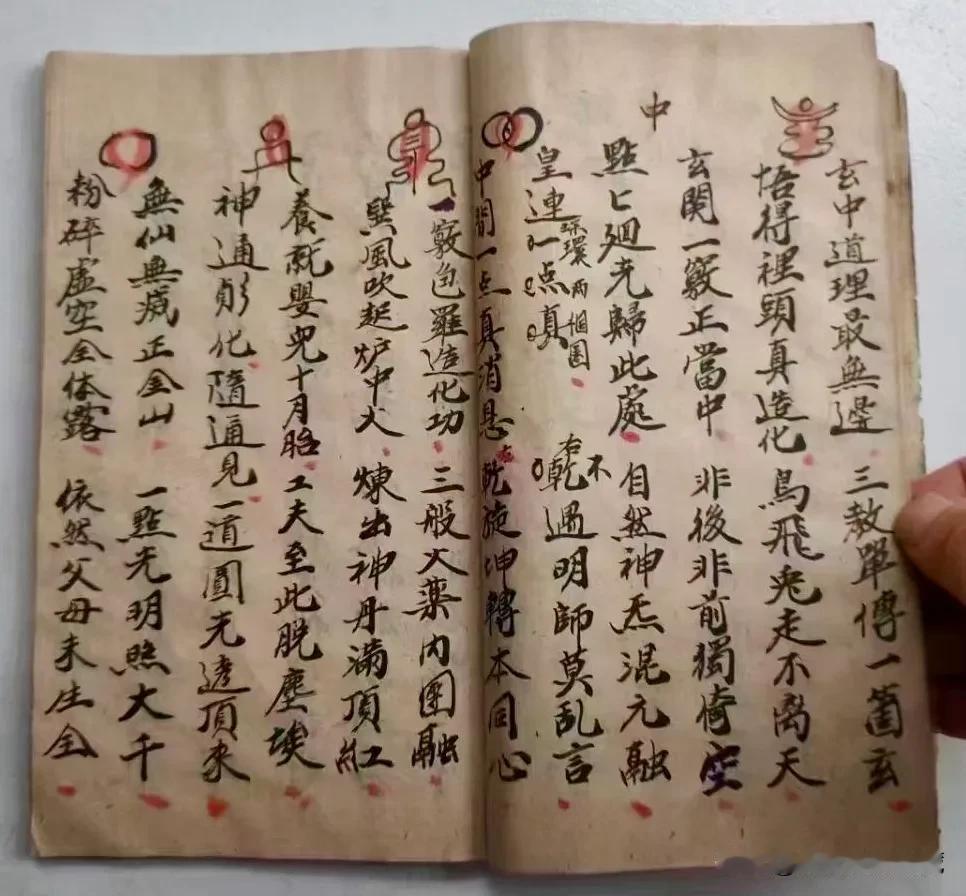 玄中道理最無邊 三教單傳一箇玄
悟得裡頭真造化 鳥飛兎走不离天
中
玄関一竅正當中 非後非前獨倚空
點匕廻光歸此處 自然神炁混元融
皇連環兩個圈一点真 不遇明師莫乱言
中間一点真消息 乾旋坤轉本同心
一竅包羅造化功 三般火藥內团融
巽風吹起炉中火 煉出神丹滿頂紅
養就嬰兒十月胎 工夫至此脱塵埃
神通变化隨通見 一道圓光透頂來
無仙無滅正金山 一點光明照大千
粉碎虛空全体露 依然父母未生全